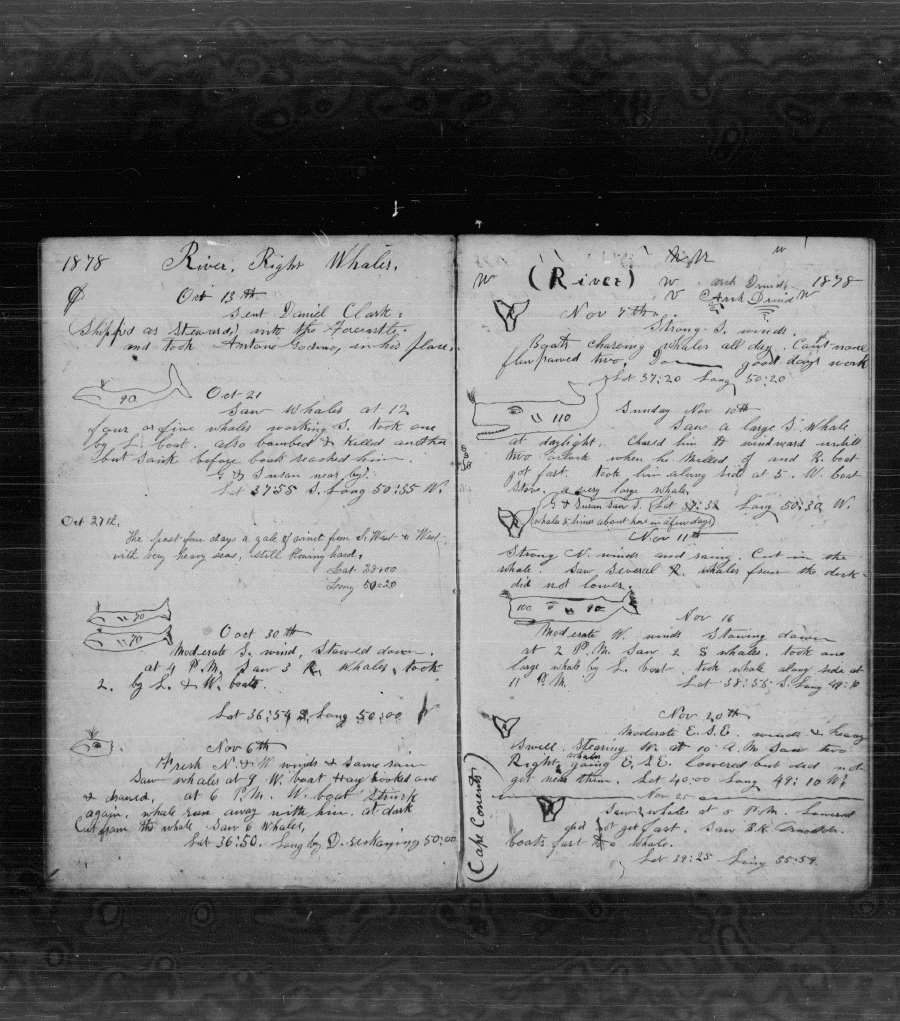 1878 River, Right Whales.
Oct 13th
Sent Daniel Clark.
(Shipp'd as Steward) into the forecastle
and took Antone Godmo, in his place.
90
Oct 21
Saw whales at 12
four or five whales working S. took one
by L. boat. also bombed & killed another
but sunk before boat reached him
G & Susan near by.
Lat 37:55 S. Long 50:35 W.
Oct 27th.
The past four days a gale of wind from S. West & West
with very heavy seas, still blowing hard,
Lat 38:00
Long 50=20
70
70
Ooct 30th
Moderate S. wind, Stawed down.
at 4 P.M. Saw 3 R. Whales, took
2. by L. & W. boats.
Lat 36:54 S. Long 50:00
Nov 6th
Fresh N. & W. winds & some rain
Saw whales at 9 W. boat hooked one
& drawed, at 6 P.M. W. boat Struck
again, whale run away with him. at dark
Cut from the whale Saw 6 Whales,
Lat 36:50. Long by D. reckoning 50:00
(River) Arch Druid 1878
Arch Druid
Nov 7th
Strong S. winds.
Boats chasing whales all day. Cant none
good days work
Lat 37:20 Long 50:20
110
Sunday Nov 10th
Saw a large S. Whale
at daylight. Chased him to windward untill
two oclock when he milled of and B. boat
got fast. took him along side at 5. W. boat
Stove. a very large whale.
G & Susan saw S. Lat Long 50:30 W.
whales 5 kind about her in a few days
Nov 11th
Strong N. winds and rainy. Cut in the
whale. Saw several R. whales from the deck
did not lower.
100 90
Nov 16
Moderate W. winds Stowing down
at 2 P.M. Saw 2 S whales. took one
large whale by L. boat. took whale along side at
11 P.M. Lat 38:56 S. Long 49:10
Nov 20th
Moderate E.S.E. winds & heavy
Swell. Stearing W. at 10 A.M Saw two
Right whales going E.S.E. lowered but did not
get near them. Lat 40:00 Long 49:10 W.
Nov 25
(Cape Corients)
Saw whales at 5 P.M. Lowered
did not get fast. Saw
boats fast to a whale.
Lat 39:25 Long 55:54